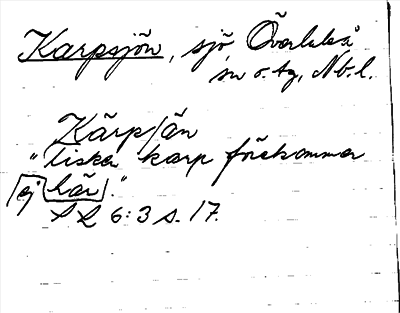 Karpsjön, sjö Överluleå
sn o. tg, Nb. l.
Kärpsjän
"liska karp förekommer
ej här."
SL 6:3 s. 17.